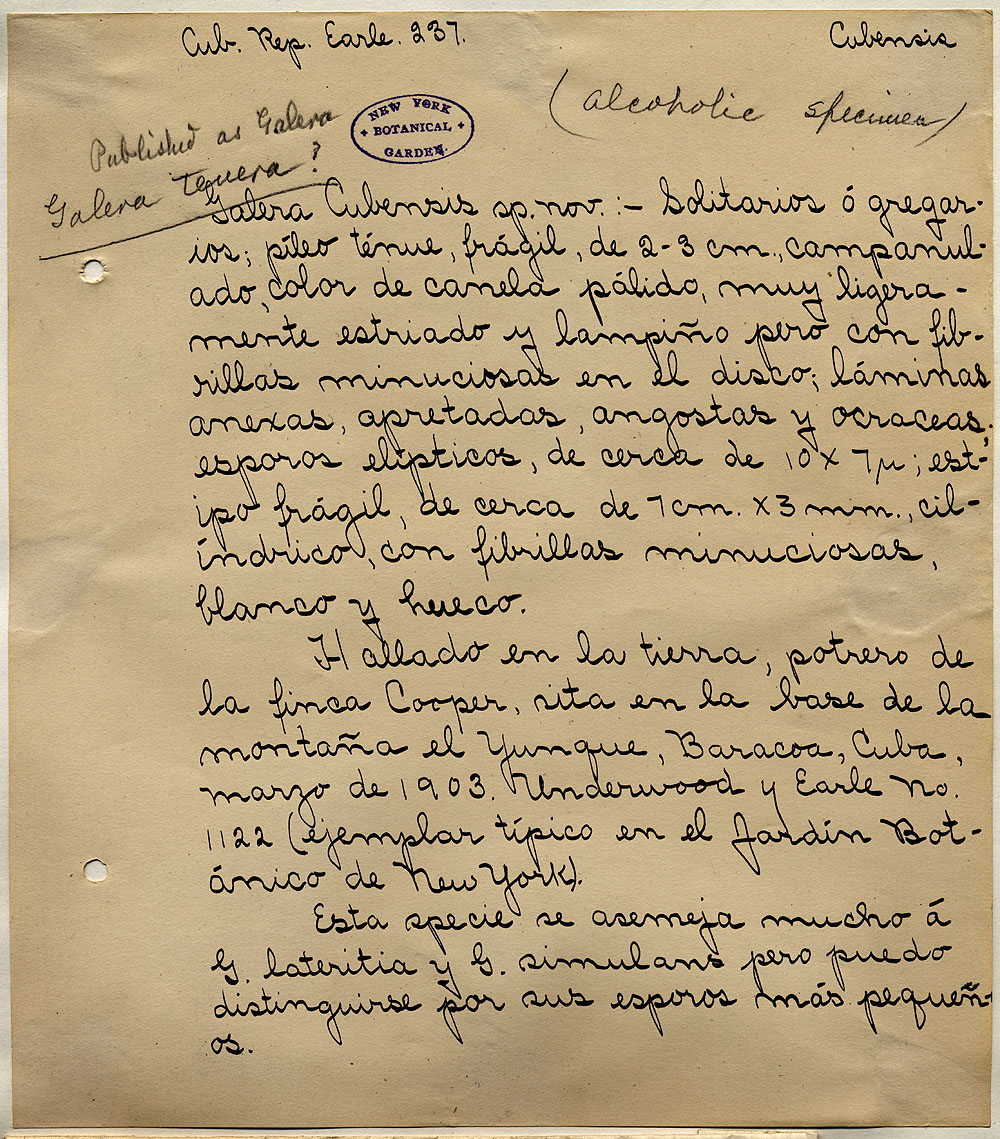 Cub. Rep. Earle. 237.
Cubensis
(alcoholic specimen)
Published as Galera
Galera tenera?
NEW YORK
BOTANICAL
GARDEN.
Galera Cubensis sp. nov. :- Solitarios ó gregar-
ios; píleo ténue, frágil, de 2-3 cm., campanul-
ado, color de canela pálido, muy ligera-
mente estriado y lampiño pero con fib-
rillas minuciosas en el disco; láminas
anexas, apretadas, angostas y ocraceas;
esporos elípticos, de cerca de 10 x 7µ; est-
ipo frágil, de cerca de 7 cm. x 3 mm., cil-
índrico, con fibrillas minuciosas,
blanco y hueco.
Hallado en la tierra, potrero de
la finca Cooper, sita en la base de la
montaña el Yunque, Baracoa, Cuba,
marzo de 1903. Underwood y Earle No.
1122 (ejemplar típico en el Jardín Bot-
ánico de New York).
Esta specie se asemeja mucho á
G. lateritia y G. simulans pero puedo
distinguirse por sus esporos más pequeñ-
os.